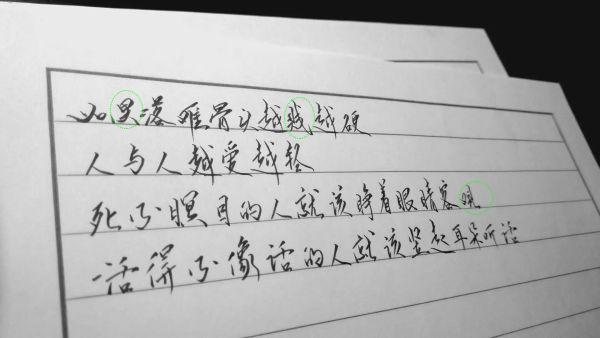 如果落难骨头越贱越硬
人与人越爱越轻
死不瞑目的人就该睁着眼睛客观
活得不像话的人就该竖起耳朵听话